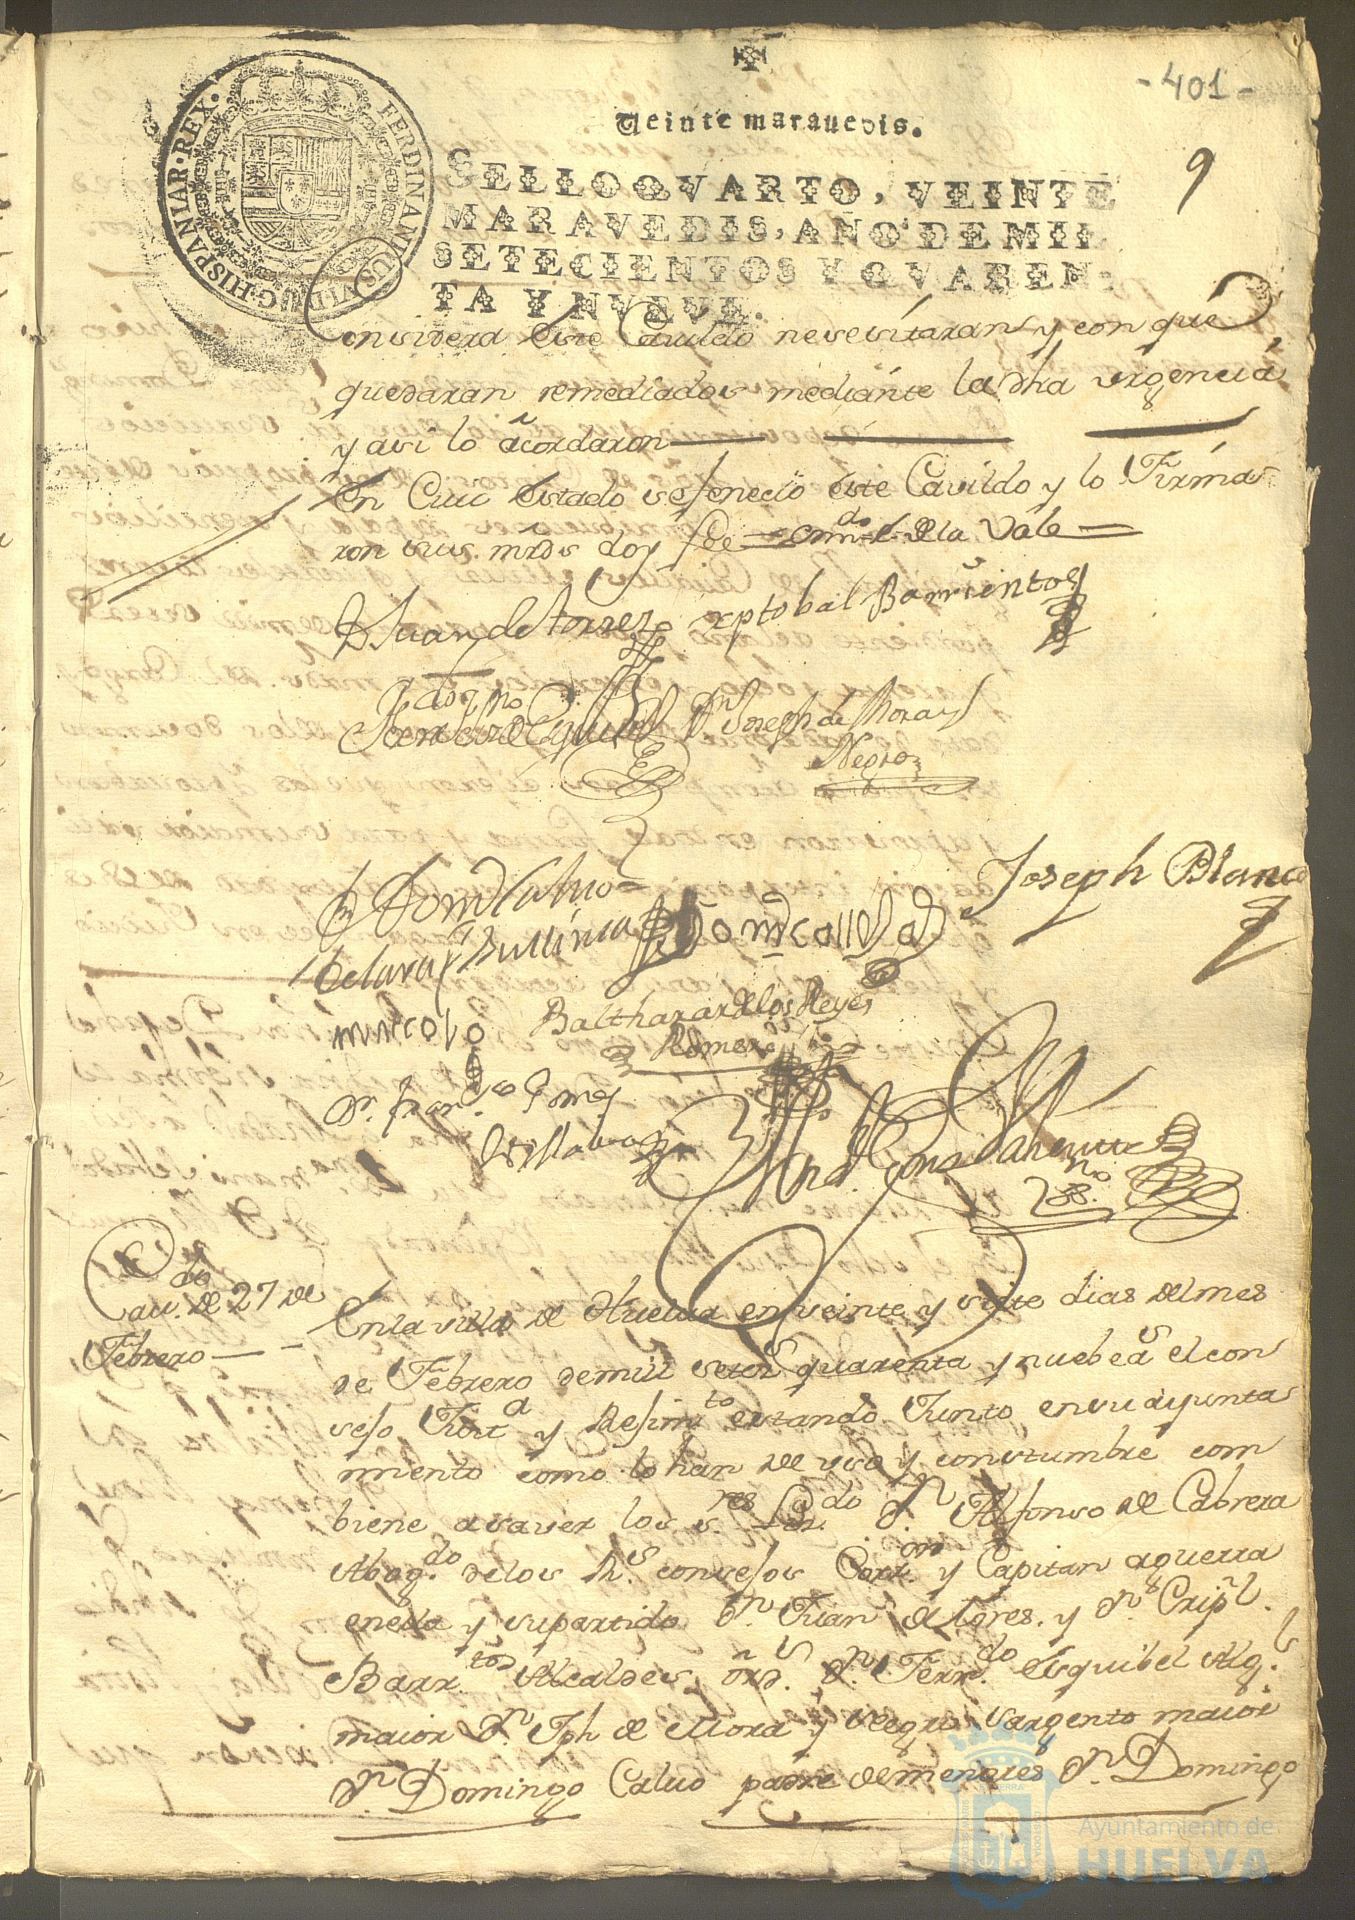 -401-
Veinte marauedis.
9
SELLO QVARTO, VEINTE
MARAVEDIS, AÑO DE MIL
SETECIENTOS Y QVAREN-
TA Y NVEVE.
HISPANIAR·REX·
FERDINANDUS·VI·D·G·
Considera este Cauildo nesesitaran y con que
quedaran remediados mediante la dha urgencia
y asi lo acordaron
En Cuio Estado se fenecio este Cavildo y lo Firma
ron sus mrds doy fee = enmdo = de la Vale
D Juan de torres xptobal Barrientos
Dn Joseph de Mora y
Negro
Joseph Blanco
Balthazar de los Reyes
Romero
Dn. Fran.co Gomez
Cau.do de 27 de
Febrero
En la villa de Huelua en veinte y siete dias del mes
de Febrero de mill setes quarenta y nuebe as el con
sejo Justa y Rejimto estando Junto en su ayunta
miento como lo han de uso y constumbre com
biene a saver los s.res Lizdo Dn Alfonso de Cabrera
Abog.do de los Rs consejos Corr.or y Capitan a guerra
en ella y su partido Dn Juan de tores y Dn Cripl.
Barr.tos Alcaldes ords. Dn Ferndo Esquibel Alg.l
maior Dn Jph de Mora y Negro Sargento maior
Dn Domingo Caluo padre de menores Dn Domingo
Ayuntamiento de
HUELVA